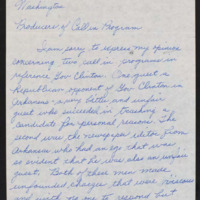 Washington
Producers of Call in Program
I am sorry to express my opinion
concerning two call in programs in
reference Gov Clinton. One guest a
Republican opponent of Gov Clinton in
Arkansas - a very bitter and unfair
guest who succeeded in trashing a
candidate for personal reasons. The
second was the newspaper editor from
Arkansas who had an ego that was
so evident that he was also an unfair
guest. Both of these men made
unfounded charges that were vicious
and with no one to respond but